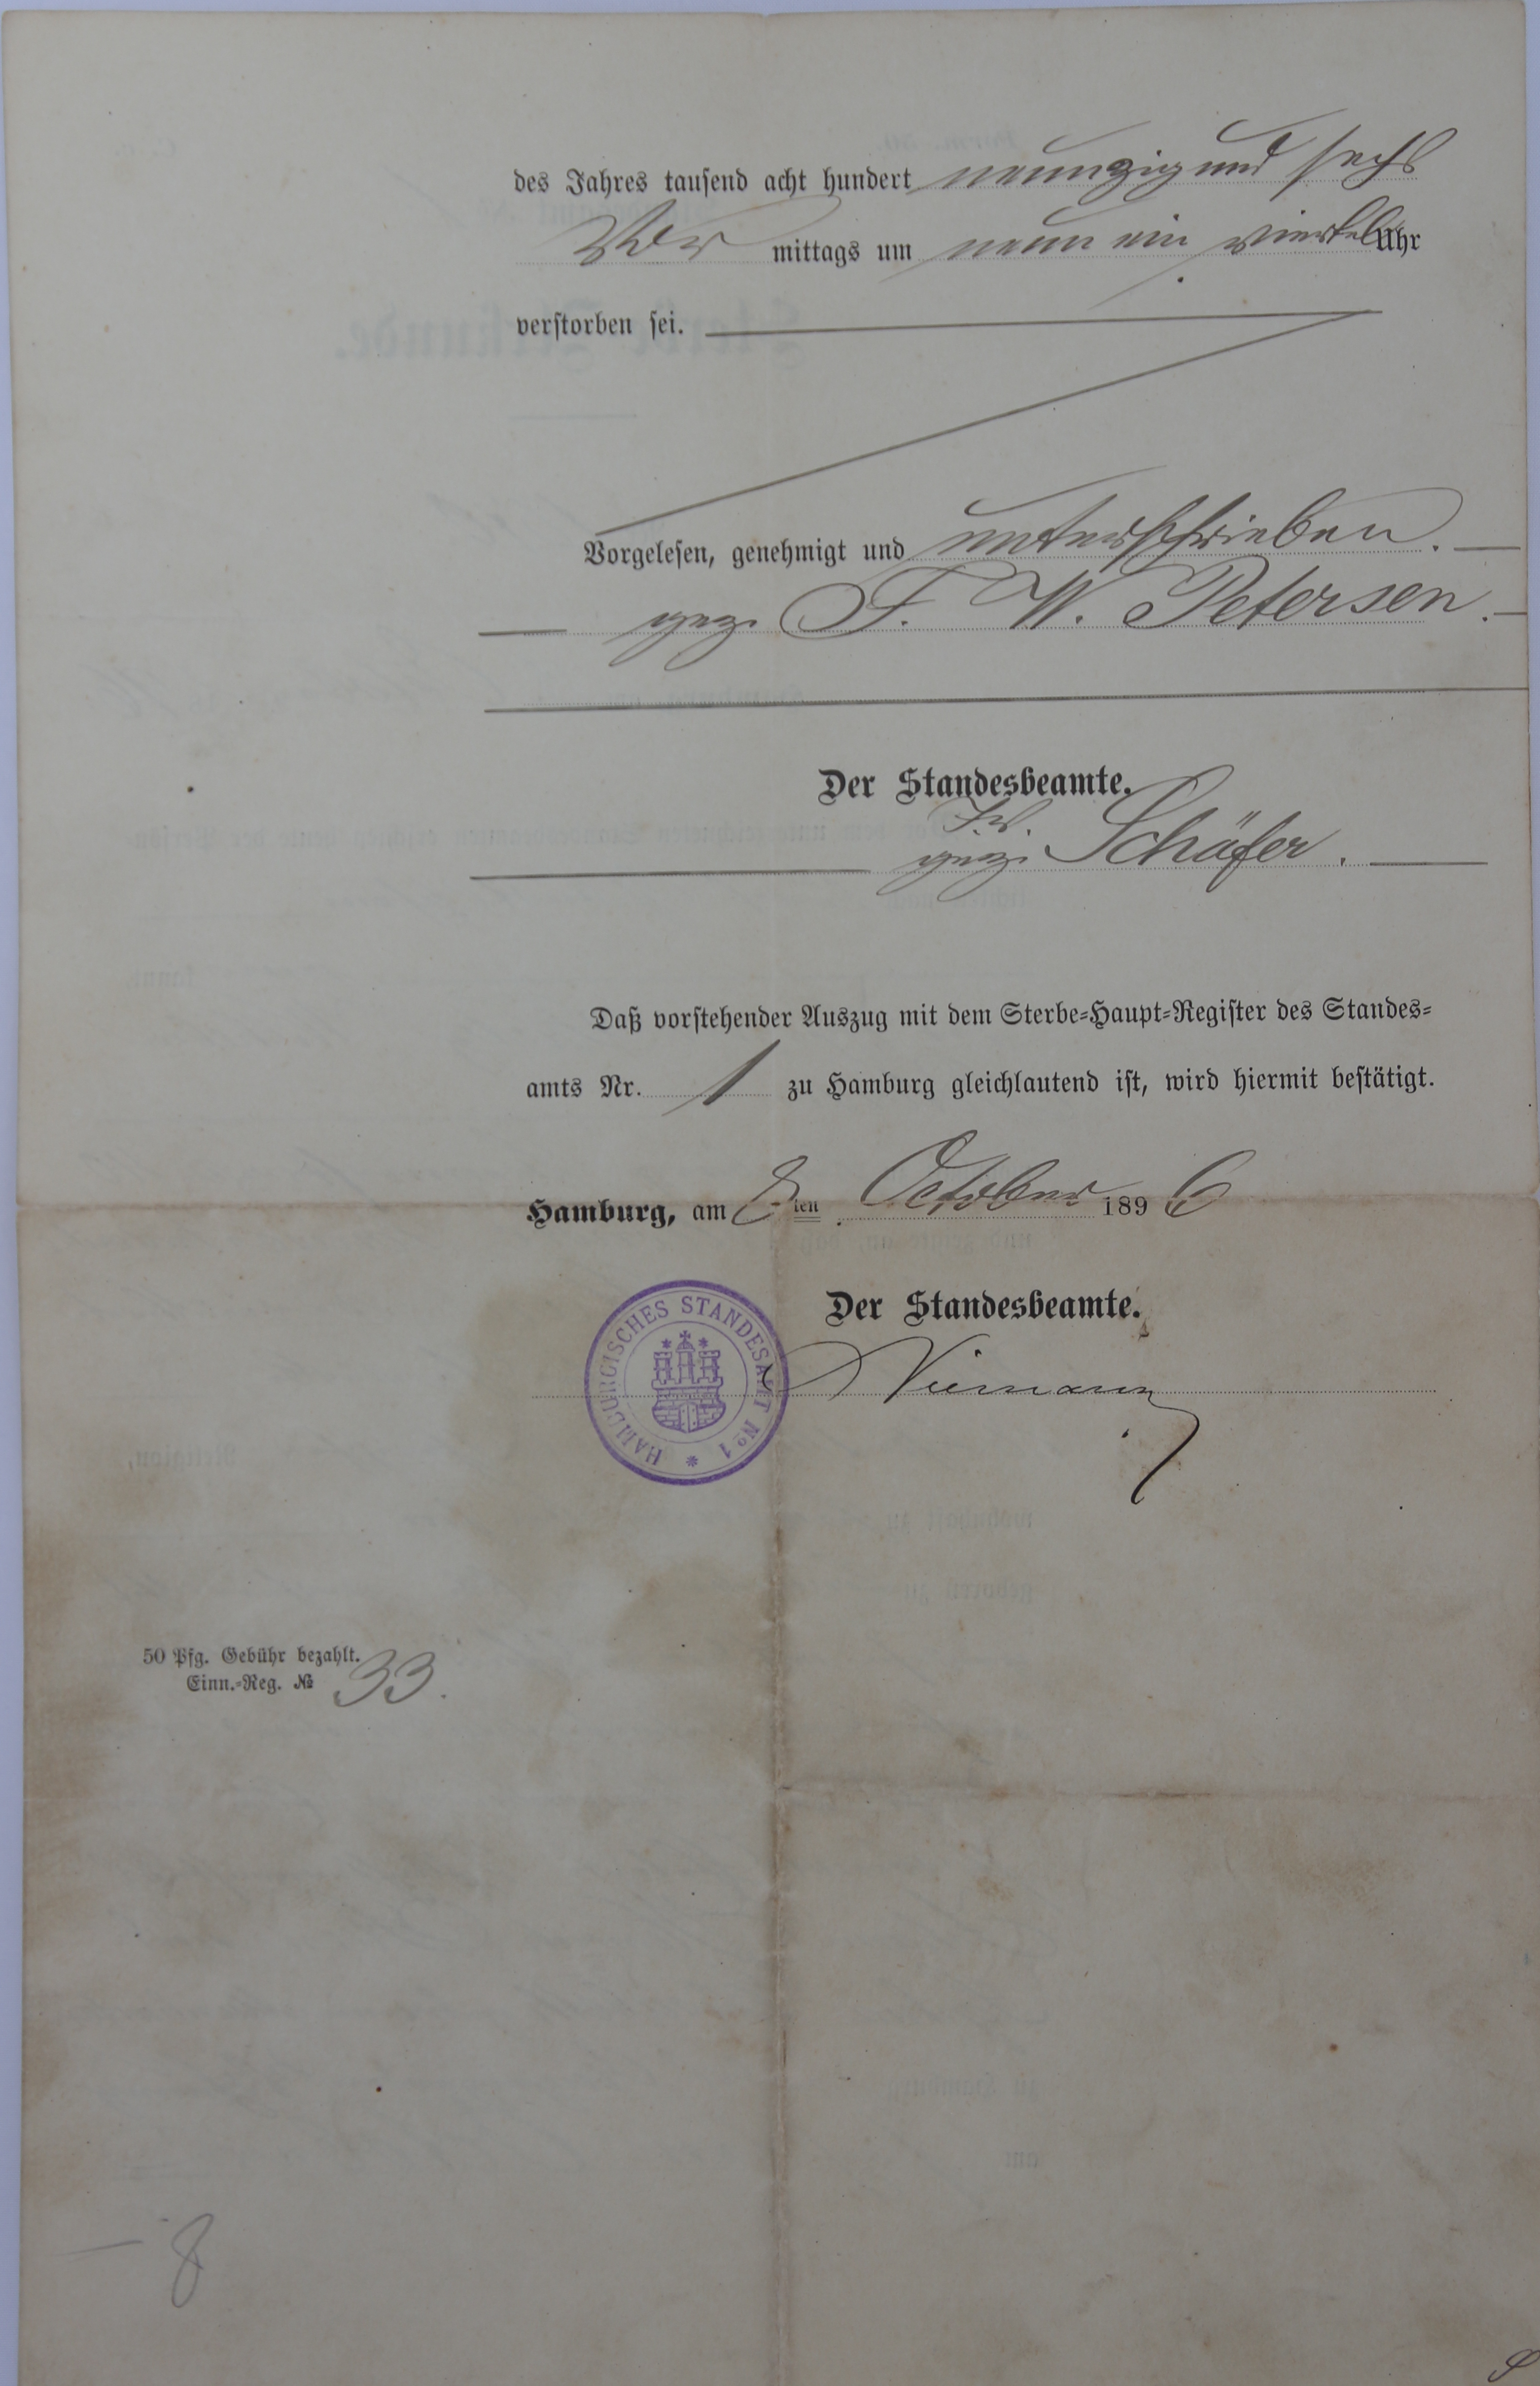 des Jahres tausend acht hundert neunzig und sechs
Vor mittags um neun ein viertel Uhr
verstorben sei.
Vorgelesen, genehmigt und unterschrieben.
gez. F. W. Petersen.
Der Standesbeamte.
J.V.
gez. Schäfer.
Daß vorstehender Auszug mit dem Sterbe-Haupt-Register des Standes-
amts Nr. 1 zu Hamburg gleichlautend ist, wird hiermit bestätigt.
Hamburg, am ten October 1896
Der Standesbeamte.
HAMBURGISCHES STANDESAMT No 1
Niemann
50 Pfg. Gebühr bezahlt.
Einn.-Reg. № 33.
8